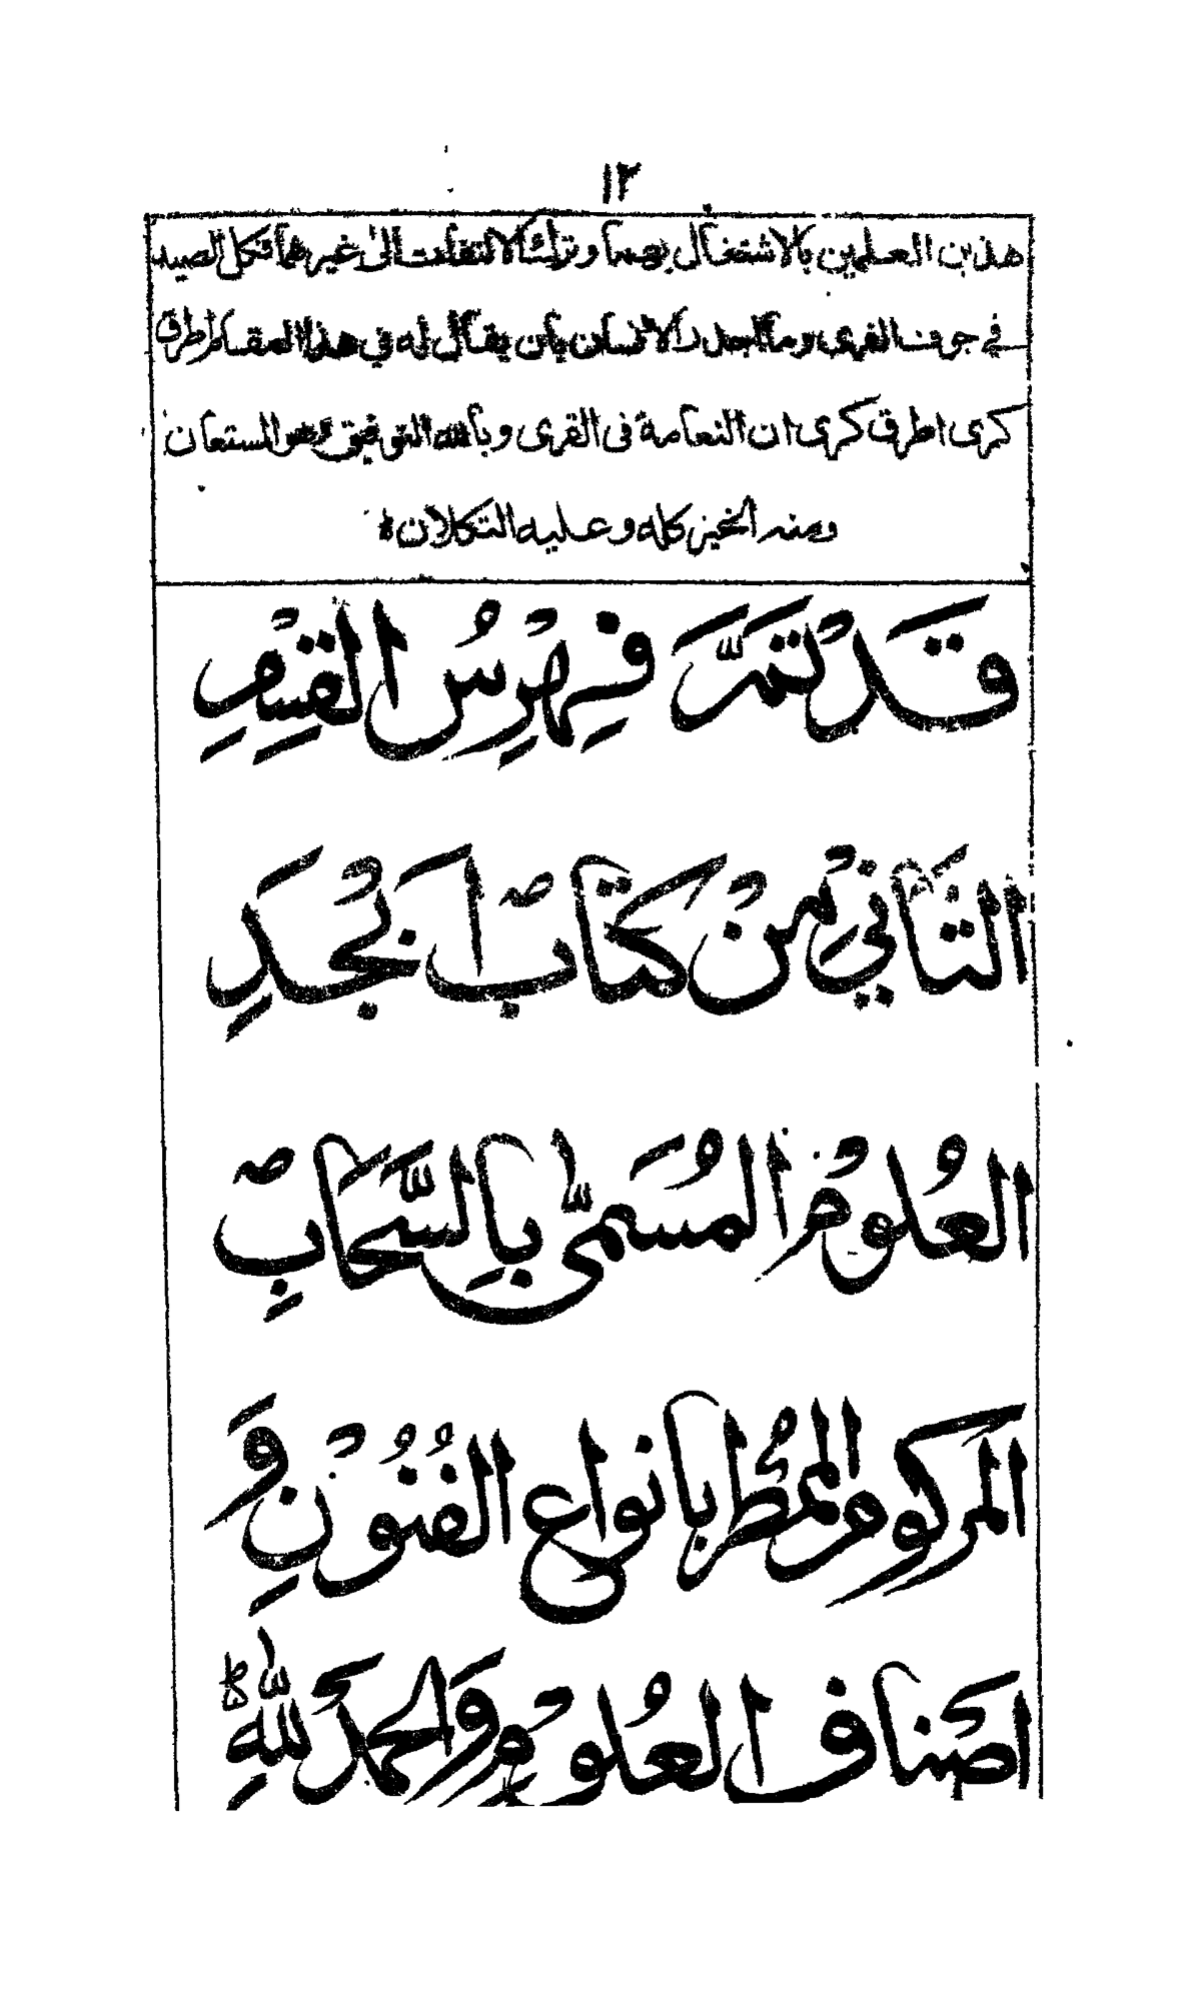 ١٢
هذين العلمين بالاشتغال بهما وترك الالتفات الى غيرهما فكل الصيد
في جوف الفرى وما اجدر الانسان بان يقال له في هذا المقام اطرق
كرى اطرق كرى ان النعامة فى القرى وبالله التوفيق وهو المستعان
ومنه الخير كله وعليه التكلان
قَدْ تَمَّ فِهْرِسُ القِسْمِ
الثَّانِي مِنْ كتاب اَبْجَدِ
العُلُومْ المُسَمّٰى بِالسَّحَابِ
المركوم الممْطُر بانواع الفُنُوْنِ وَ
اصْناف العُلُوْمِ وَالحمدُ لِلّٰهِ